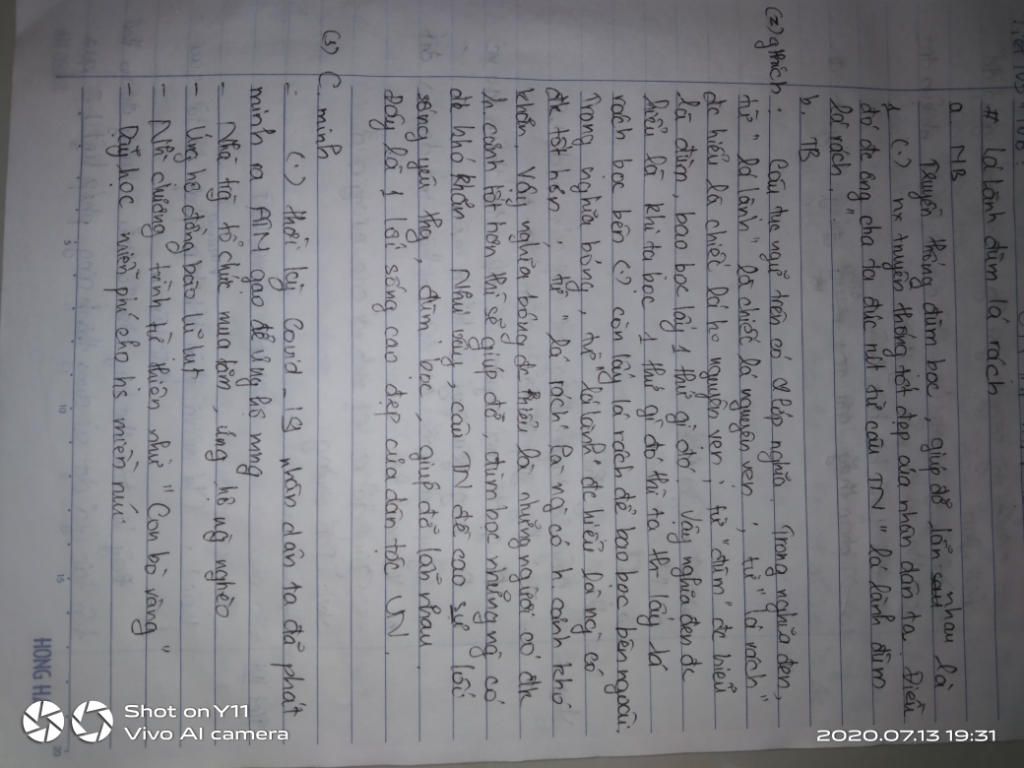 # lá lành đùm lá rách
a. NB
Truyền thống đùm bọc, giúp đỡ lẫn nhau là
1 (.) nx truyền thống tốt đẹp của nhân dân ta. Điều
đó đc ông cha ta đúc rút từ câu TN "lá lành đùm
lá rách."
b. TB
(2) gthích: Câu tục ngữ trên có 2 lớp nghĩa. Trong nghĩa đen,
từ "lá lành" là chiếc lá nguyên vẹn, từ "lá rách"
đc hiểu là chiếc lá ko nguyên vẹn, từ "đùm" đc hiểu
là đùm, bao bọc lấy 1 thứ gì đó. Vậy nghĩa đen đc
hiểu là khi ta bọc 1 thứ gì đó thì ta th lấy lá
rách bọc bên (.) còn lấy lá rách để bao bọc bên ngoài.
Trong nghĩa bóng, từ "lá lành" đc hiểu là ng có
đk tốt hơn, từ "lá rách" là ng có h cảnh khó
khăn. Vậy nghĩa bóng đc hiểu là những người có đk
h cảnh tốt hơn thì sẽ giúp đỡ, đùm bọc những ng có
đk khó khăn. Như vậy, câu TN đề cao lối
sống yêu thg, đùm bọc, giúp đỡ lẫn nhau.
Đây là 1 lối sống cao đẹp của dân tộc VN.
(3) C minh
- (.) thời kỳ Covid-19 nhân dân ta đã phát
minh ra ATN gạo để
- Nhà trg tổ chức mua tăm, ủng hộ ng nghèo
- Ủng hộ đồng bào lũ lụt
- Nhg chương trình từ thiện như "Con bò vàng"
- Dạy học miễn phí cho hs miền núi
HONG H
Shot on Y11
Vivo AI camera
2020.07.13 19:31